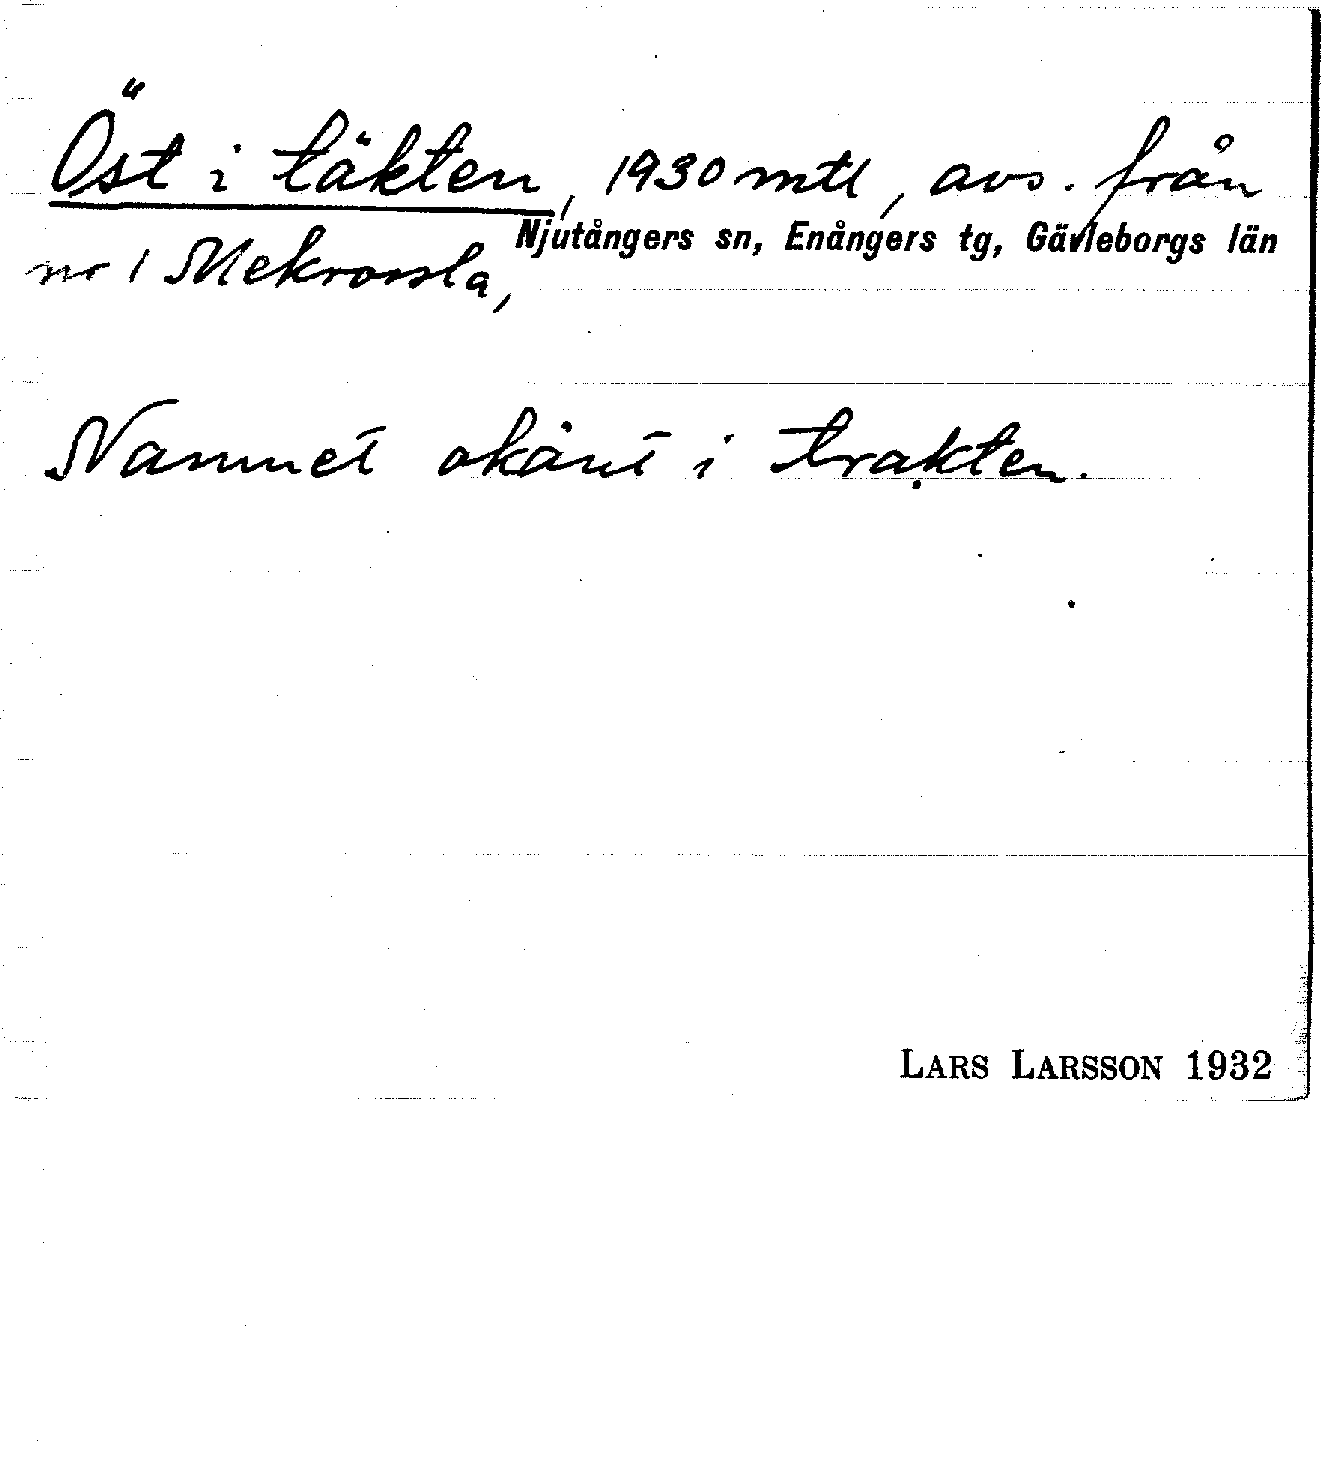 Öst i täkten, 1930 mtl, avs. från
Njutångers sn, Enångers tg, Gävleborgs län
nr 1 Mekrossla,
Namnet okänt i trakten.
LARS LARSSON 1932